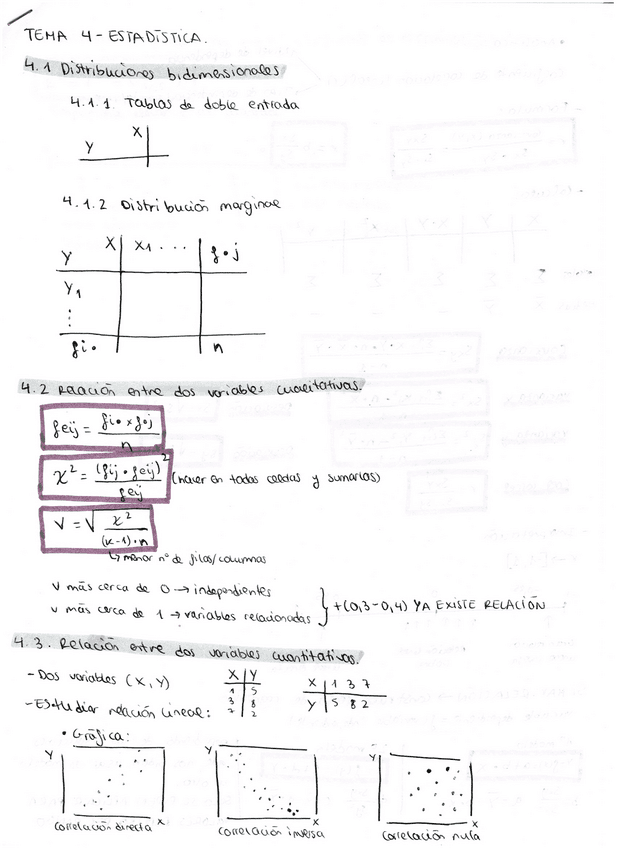 TEMA 4 - ESTADÍSTICA.
4.1 Distribuciones bidimensionales
4.1.1. Tablas de doble entrada
X
Y
4.1.2 Distribución marginal
Y X X1 ... f•j
Y1
⋮
fi• n
4.2 Relación entre dos variables cualitativas.
feij = fi• x f•j / n
χ² = (fij • feij)² / feij (hacer en todas celdas y sumarlos)
V = √ χ² / (k-1)·n
↳ menor nº de filas/columnas
V más cerca de 0 → independientes
V más cerca de 1 → variables relacionadas } + (0,3 - 0,4) YA EXISTE RELACIÓN
4.3. Relación entre dos variables cuantitativas.
- Dos variables (X, Y)
- Estudiar relación lineal:
X Y
1 5
3 8
7 2
X 1 3 7
Y 5 8 2
• Gráfica:
Y X
correlación directa
Y X
correlación inversa
Y X
correlación nula